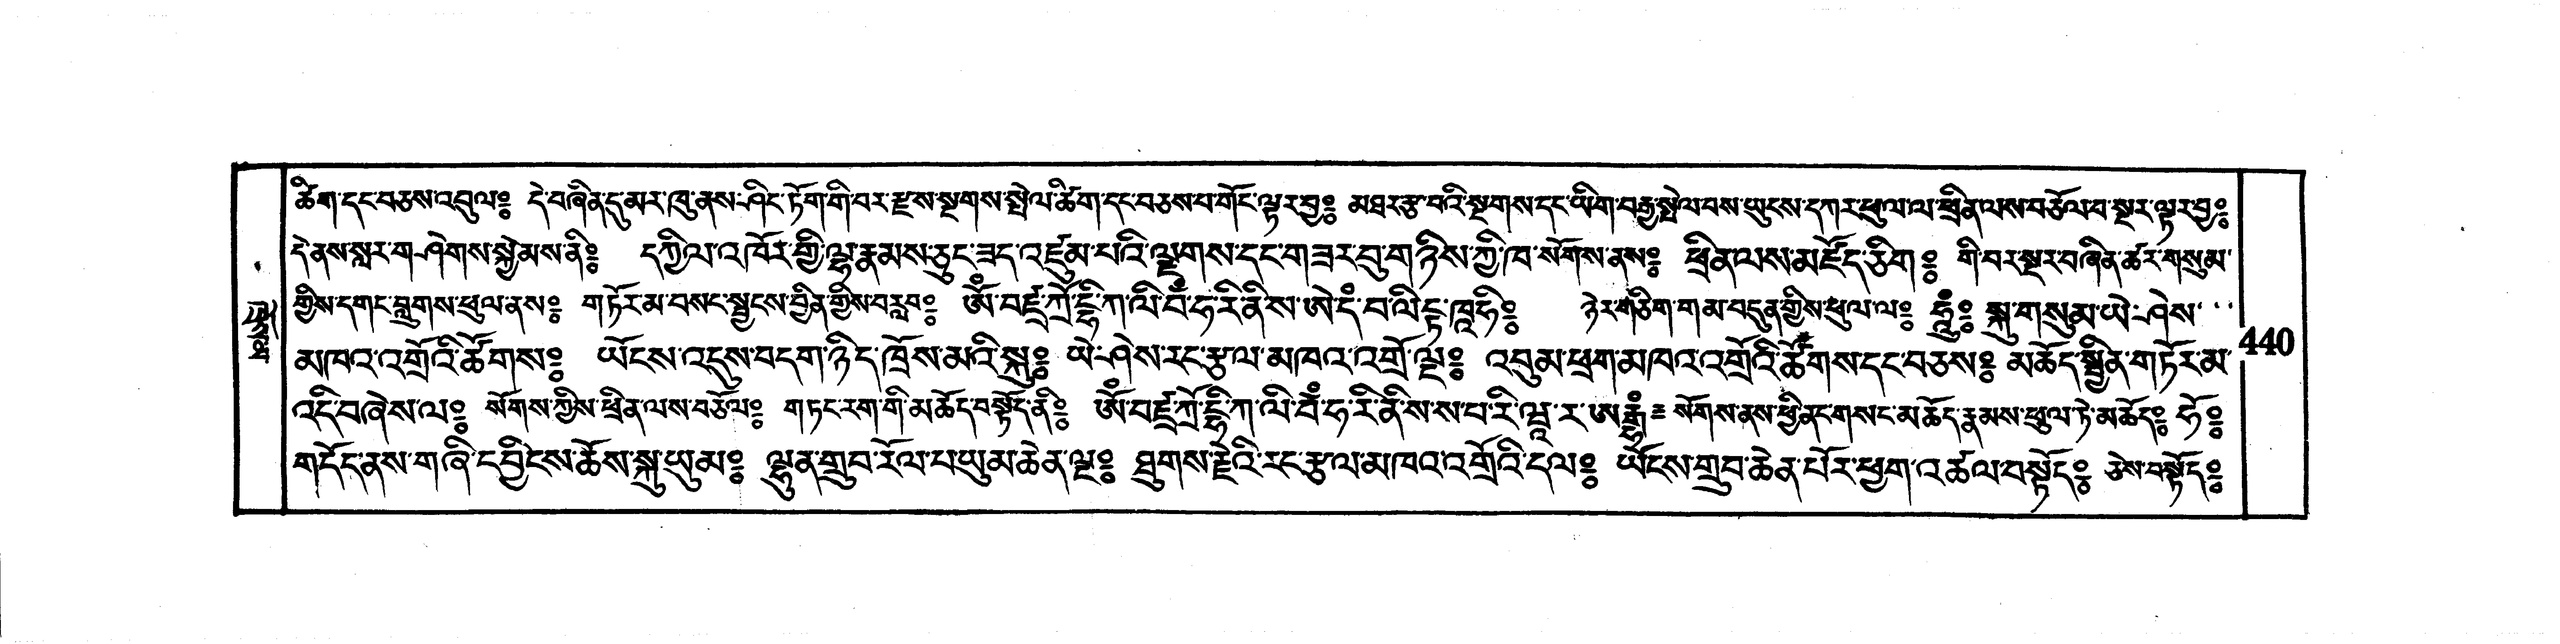 ཚིག་དང་བཅས་འབུལ༔ དེ་བཞིན་དུ་མར་ཁུ་ནས་ཤིང་ཏོག་གི་བར་རྫས་སྔགས་སྤེལ་ཚིག་དང་བཅས་པ་གོང་ལྟར་བྱ༔ མཐར་རྩ་བའི་སྔགས་དང་ཡིག་བརྒྱ་སྤེལ་བས་ཡུངས་དཀར་ཕུལ་ལ་ཕྲིན་ལས་བཅོལ་བ་སྔར་ལྟར་བྱ༔
དེ་ནས་སླར་གཤེགས་སྐྱེམས་ནི༔ དཀྱིལ་འཁོར་གྱི་ལྷ་རྣམས་ཅུང་ཟད་འཛུམ་པའི་ལྗགས་དང་གཟར་བུ་གཉིས་ཀྱི་ཁ་སོགས་ནས༔ ཕྲིན་ལས་མཛོད་ཅིག༔ གི་བར་སྔར་བཞིན་ཚར་གསུམ་
གྱིས་དགང་བླུགས་ཕུལ་ནས༔ གཏོར་མ་བསང་སྦྱངས་བྱིན་གྱིས་བརླབ༔ ཨོཾ་བཛྲ་ཀྲོ་དྷཱི་ཀ་ལི་བཾ་ཧ་རི་ནི་ས་ཨེ་དཾ་བ་ལིངྟ་ཁཱ་ཧི༔ ཉེར་གཅིག་གམ་བདུན་གྱིས་ཕུལ་ལ༔ ཧཱུྃ༔ སྐུ་གསུམ་ཡེ་ཤེས་
མཁའ་འགྲོའི་ཚོགས༔ ཡོངས་འདུས་བདག་ཉིད་ཁྲོས་མའི་སྐུ༔ ཡེ་ཤེས་རང་རྩལ་མཁའ་འགྲོ་ལྔ༔ འབུམ་ཕྲག་མཁའ་འགྲོའི་ཚོགས་དང་བཅས༔ མཆོད་སྦྱིན་གཏོར་མ་
འདི་བཞེས་ལ༔ སོགས་ཀྱིས་ཕྲིན་ལས་བཅོལ༔ གཏང་རག་གི་མཆོད་བསྟོད་ནི༔ ཨོཾ་བཛྲ་ཀྲོ་དྷཱི་ཀ་ལི་བཾ་ཧ་རི་ནི་ས་ས་པ་རི་ཝཱ་ར་ཨརྒྷཾ༔ སོགས་ནས་ཕྱི་ནང་གསང་མཆོད་རྣམས་ཕུལ་ཏེ་མཆོད༔ ཧོ༔
གདོད་ནས་གཞི་དབྱིངས་ཆོས་སྐུ་ཡུམ༔ ལྷུན་གྲུབ་རོལ་པ་ཡུམ་ཆེན་ལྔ༔ ཐུགས་རྗེའི་རང་རྩལ་མཁའ་འགྲོའི་དལ༔ ཡོངས་གྲུབ་ཆེན་པོར་ཕྱག་འཚལ་བསྟོད༔ ཅེས་བསྟོད༔
440